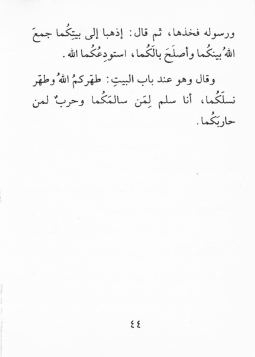 ورسوله فخذها، ثم قال: إذهبا إلى بيتِكُما جمعَ
اللهُ بينكُما وأصلَحَ بالَكُما، استودِعُكُما الله.
وقال وهو عند باب البيتِ: طهّركمُ اللهُ وطهّر
نسلَكُما، أنا سلم لِمَن سالمَكُما وحربٌ لمن
حاربَكُما.
٤٤